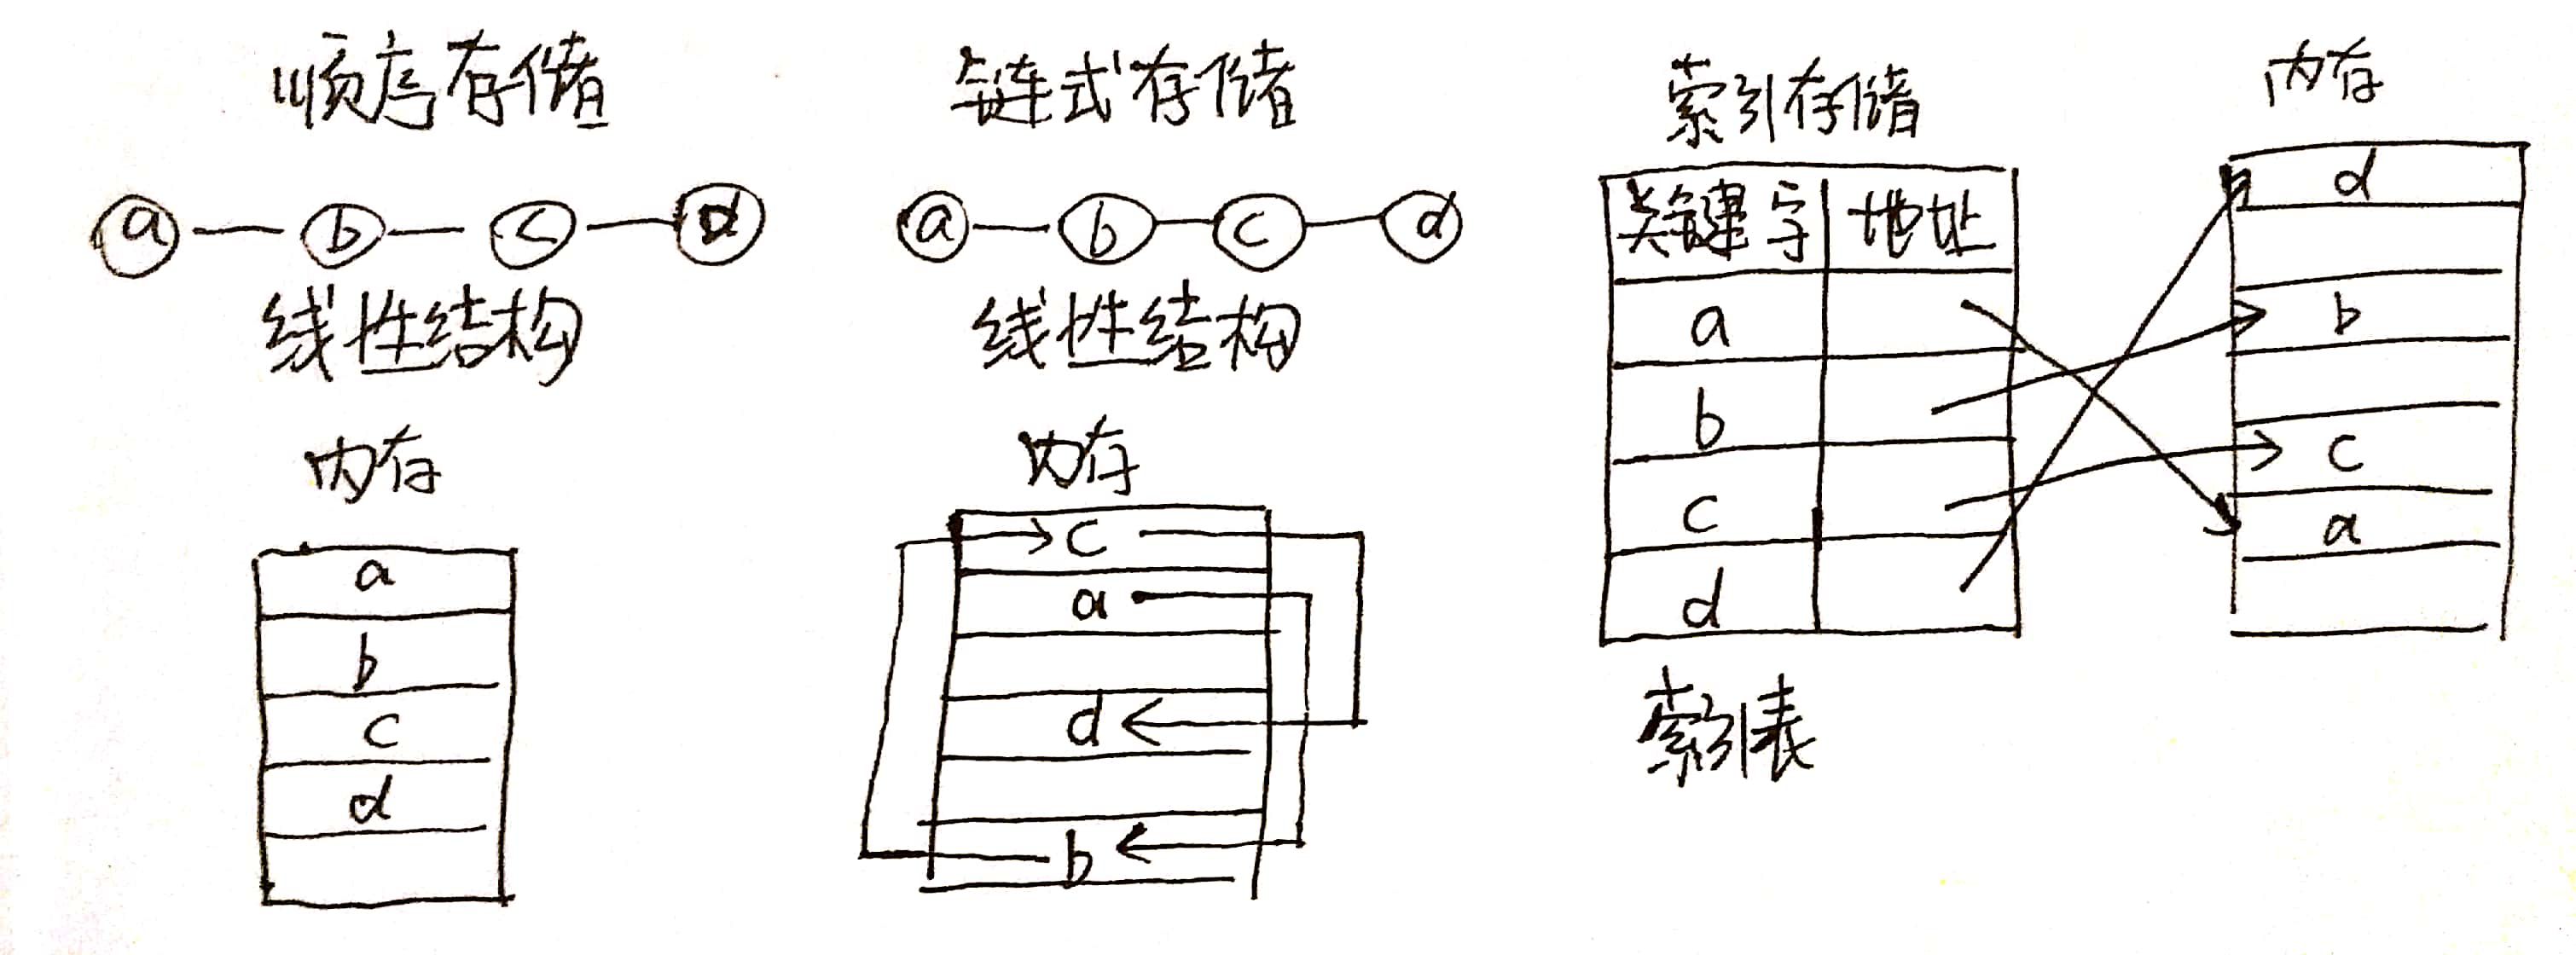 顺序存储
a b c d
线性结构
内存
a
b
c
d
链式存储
a b c d
线性结构
内存
c
a
d
b
索引存储
关键字 地址
a
b
c
d
索引表
内存
d
b
c
a